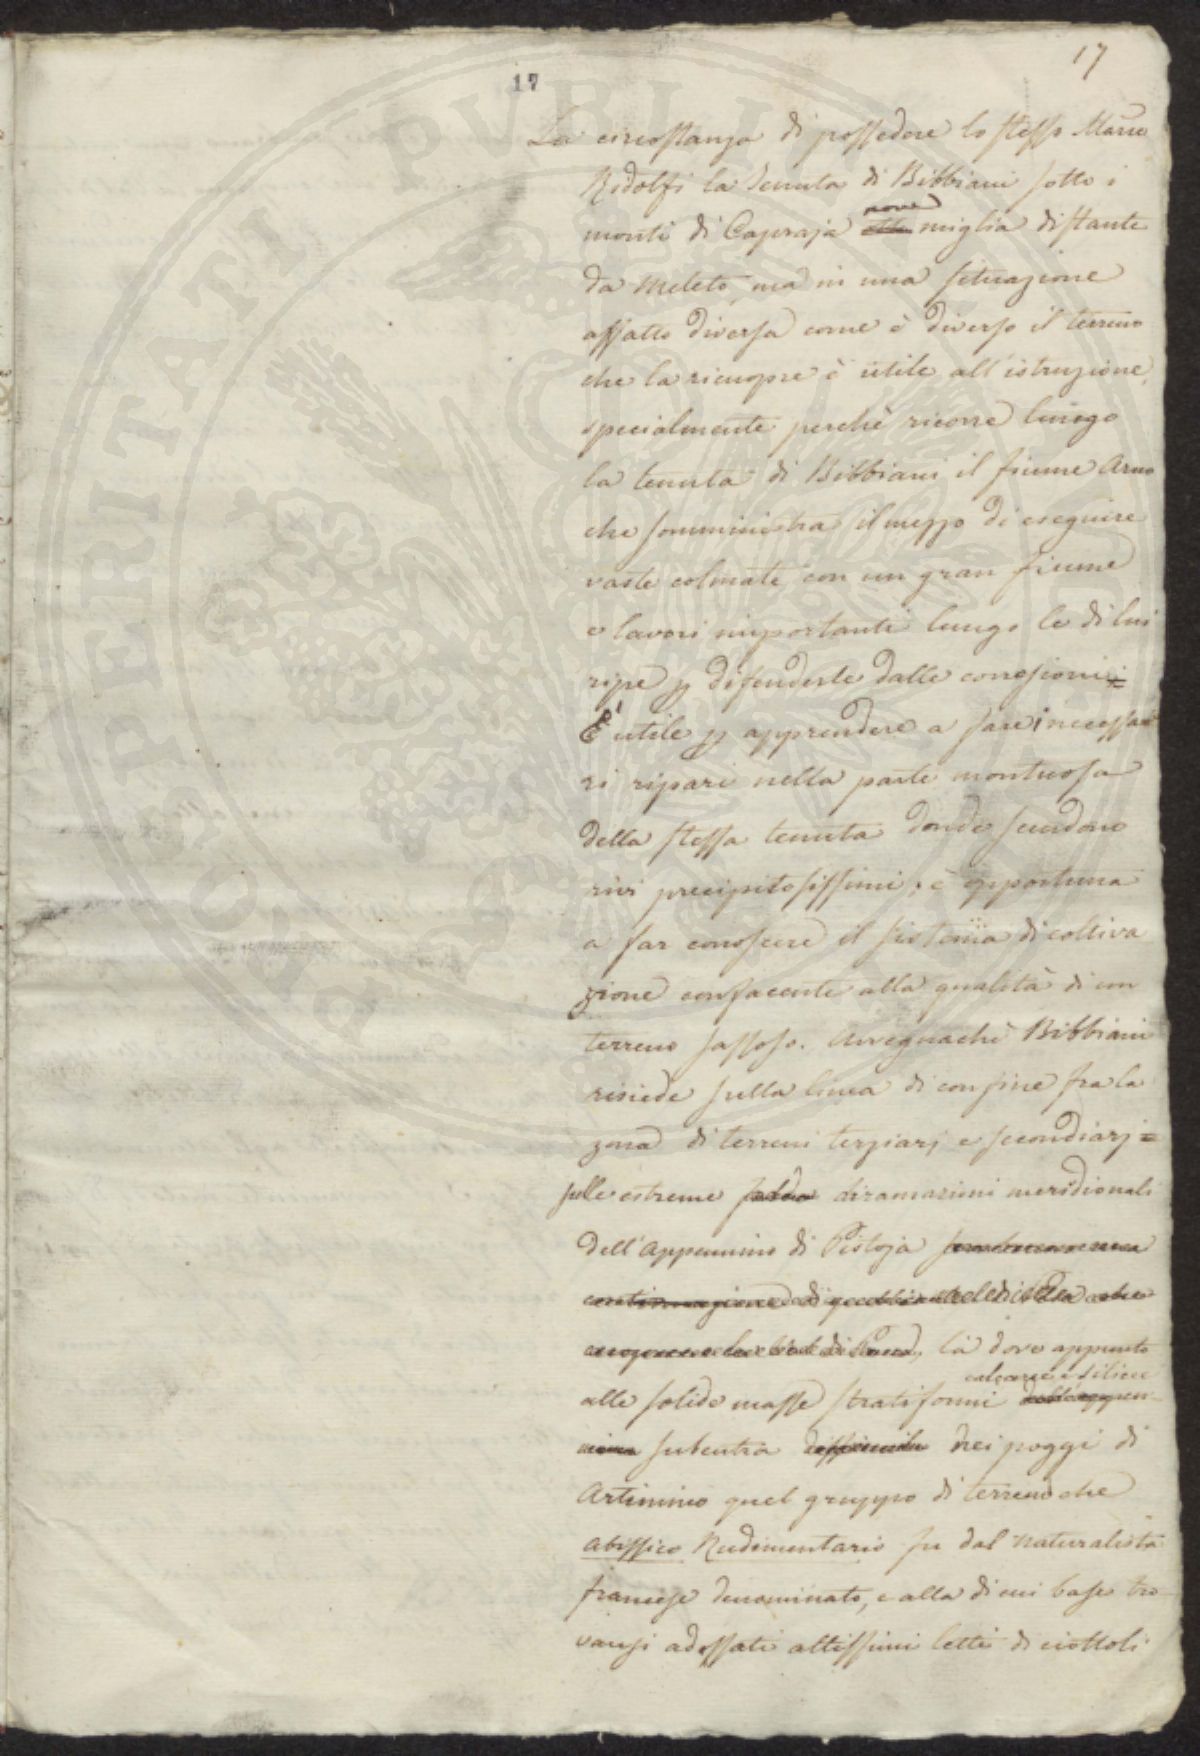 17
17
La circostanza di possedere lo stesso March
Ridolfi la Tenuta di Bibbiani sotto i
nove
monti di Capraja otto miglia distante
da Meleto, ma in una situazione
affatto diversa come è diverso il terreno
che la ricuopre è utile all'istruzione,
specialmente perchè ricorre lungo
la tenuta di Bibbiani il fiume Arno
che somministra il mezzo di eseguire
vaste colmate con un gran fiume
e lavori importanti lungo le di lui
ripe p difenderle dalle corrosioni
È utile p apprendere a fare i necessa=
ri ripari nella parte montuosa
della stessa tenuta donde scendono
rivi precipitosissimi; è opportuna
a far conoscere il sistema di coltiva
zione confacente alla qualità di un
terreno sassoso. Avvegnachè Bibbiani
risiede sulla linea di confine fra la
zona di terreni terziarj e secondiarj =
sulle estreme falde diramazioni meridionali
dell'Appennino di Pistoja
continuazione di che
là dove appunto
calcaree e silicee
alle solide masse stratiformi dell'appen-
nino subentra nei poggi di
Artimino quel gruppo di terreno che
Abissico Rudimentario fu dal naturalista
francese denominato, e alla di cui base tro
vansi adossati altissimi letti di ciottoli
PROSPERITATI PVBLI